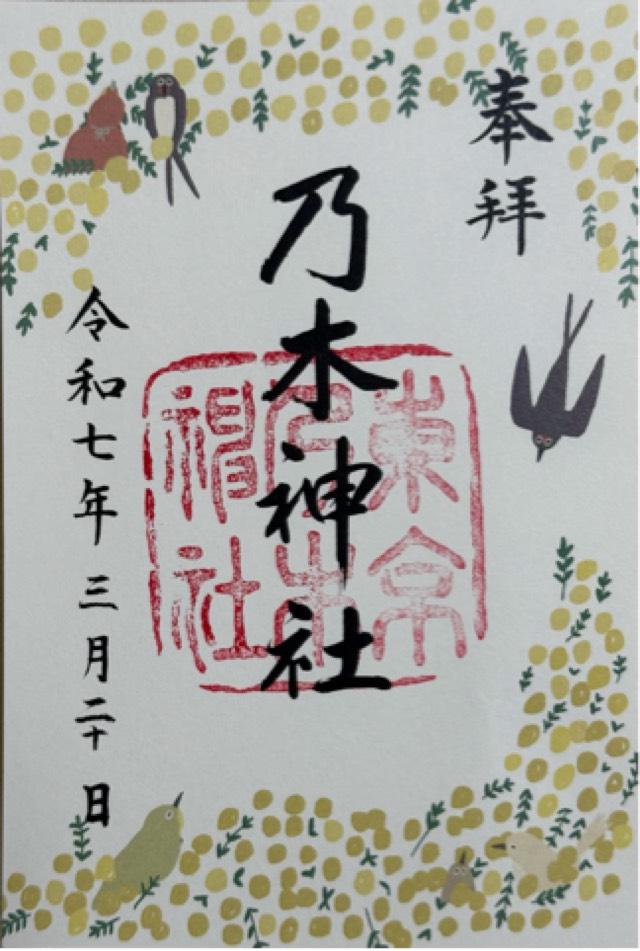 奉拝
乃木神社
東京
乃木
神社
令和七年三月二十日